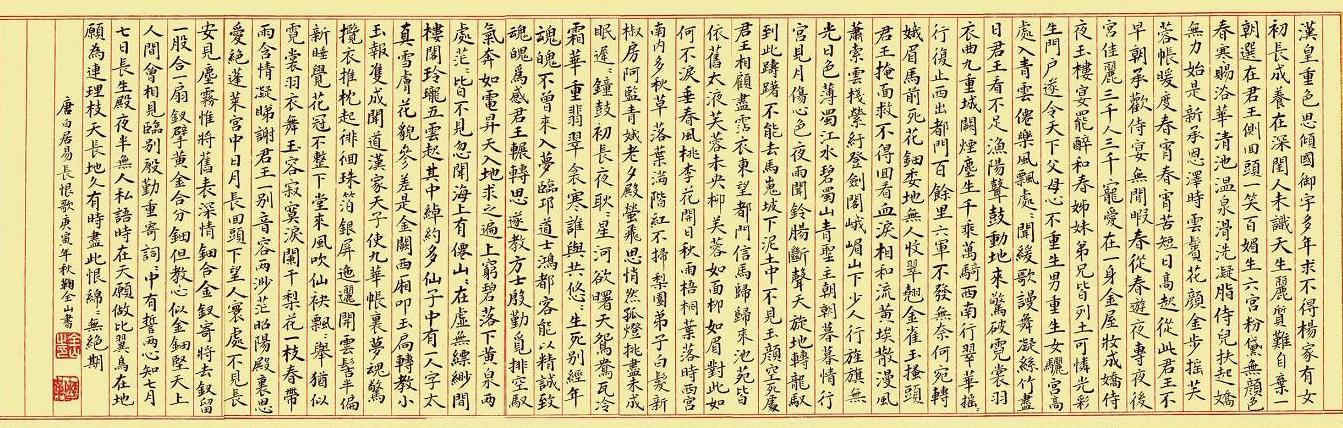 漢皇重色思傾國御宇多年求不得楊家有女
初長成養在深閨人未識天生麗質難自棄一
朝選在君王側回頭一笑百媚生六宮粉黛無顏色
春寒賜浴華清池温泉滑洗凝脂侍兒扶起嬌
無力始是新承恩澤時雲鬢花顏金步搖芙
蓉帳暖度春宵春宵苦短日高起從此君王不
早朝承歡侍宴無閒暇春從春遊夜專夜後
宮佳麗三千人三千寵愛在一身金屋妝成嬌侍
夜玉樓宴罷醉和春姊妹弟兄皆列土可憐光彩
生門戶遂令天下父母心不重生男重生女驪宮高
處入青雲僊樂風飄處〻聞緩歌謾舞凝絲竹盡
日君王看不足漁陽鼙鼓動地來驚破霓裳羽
衣曲九重城闕煙塵生千乘萬騎西南行翠華搖〻
行復止西出都門百餘里六軍不發無奈何宛轉
娥眉馬前死花鈿委地無人收翠翹金雀玉搔頭
君王掩面救不得回看血淚相和流黃埃散漫風
蕭索雲棧縈紆登劍閣峨嵋山下少人行旌旗無
光日色薄蜀江水碧蜀山青聖主朝朝暮暮情行
宮見月傷心色夜雨聞鈴腸斷聲天旋地轉龍馭
到此躊躇不能去馬嵬坡下泥土中不見玉顏空死處
君王相顧盡霑衣東望都門信馬歸歸來池苑皆
依舊太液芙蓉未央柳芙蓉如面柳如眉對此如
何不淚垂春風桃李花開日秋雨梧桐葉落時西宮
南内多秋草落葉滿階紅不掃梨園弟子白髮新
椒房阿監青娥老夕殿螢飛思悄然孤燈挑盡未成
眠遲〻鐘鼓初長夜耿〻星河欲曙天鴛鴦瓦冷
霜華重翡翠衾寒誰與共悠〻生死別經年
魂魄不曾來入夢臨邛道士鴻都客能以精誠致
魂魄爲感君王輾轉思遂教方士殷勤覓排空馭
氣奔如電昇天入地求之遍上窮碧落下黃泉兩
處茫〻皆不見忽聞海上有僊山〻在虛無縹緲間
樓閣玲瓏五雲起其中綽約多仙子中有一人字太
真雪膚花貌參差是金闕西廂叩玉扃轉教小
玉報雙成聞道漢家天子使九華帳裏夢魂驚
攬衣推枕起徘徊珠箔銀屏迤邐開雲髻半偏
新睡覺花冠不整下堂來風吹仙袂飄〻舉猶似
霓裳羽衣舞玉容寂寞淚闌干梨花一枝春帶
雨含情凝睇謝君王一別音容兩渺茫昭陽殿裏恩
愛絕蓬萊宮中日月長回頭下望人寰處不見長
安見塵霧惟將舊表深情鈿合金釵寄將去釵留
一股合一扇釵擘黃金合分鈿但教心似金鈿堅天上
人間會相見臨別殷勤重寄詞〻中有誓兩心知七月
七日長生殿夜半無人私語時在天願做比翼鳥在地
願為連理枝天長地久有時盡此恨綿〻無絕期
唐白居易長恨歌庚寅年秋鞠全山書